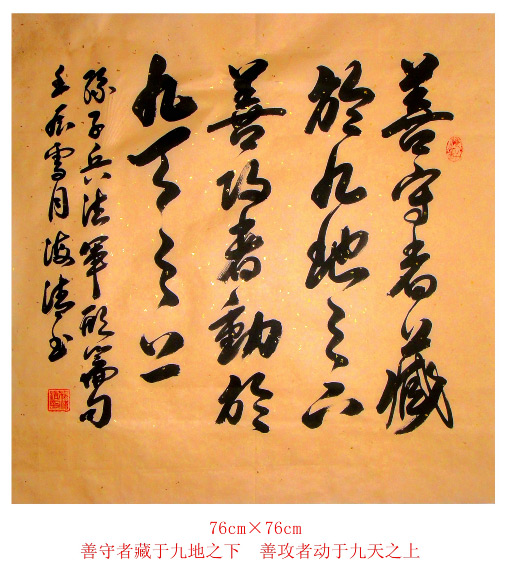 善守者藏
於九地之下
善攻者動於
九天之上
孫子兵法軍形篇句
雪月海清书
76cm×76cm
善守者藏于九地之下　善攻者动于九天之上